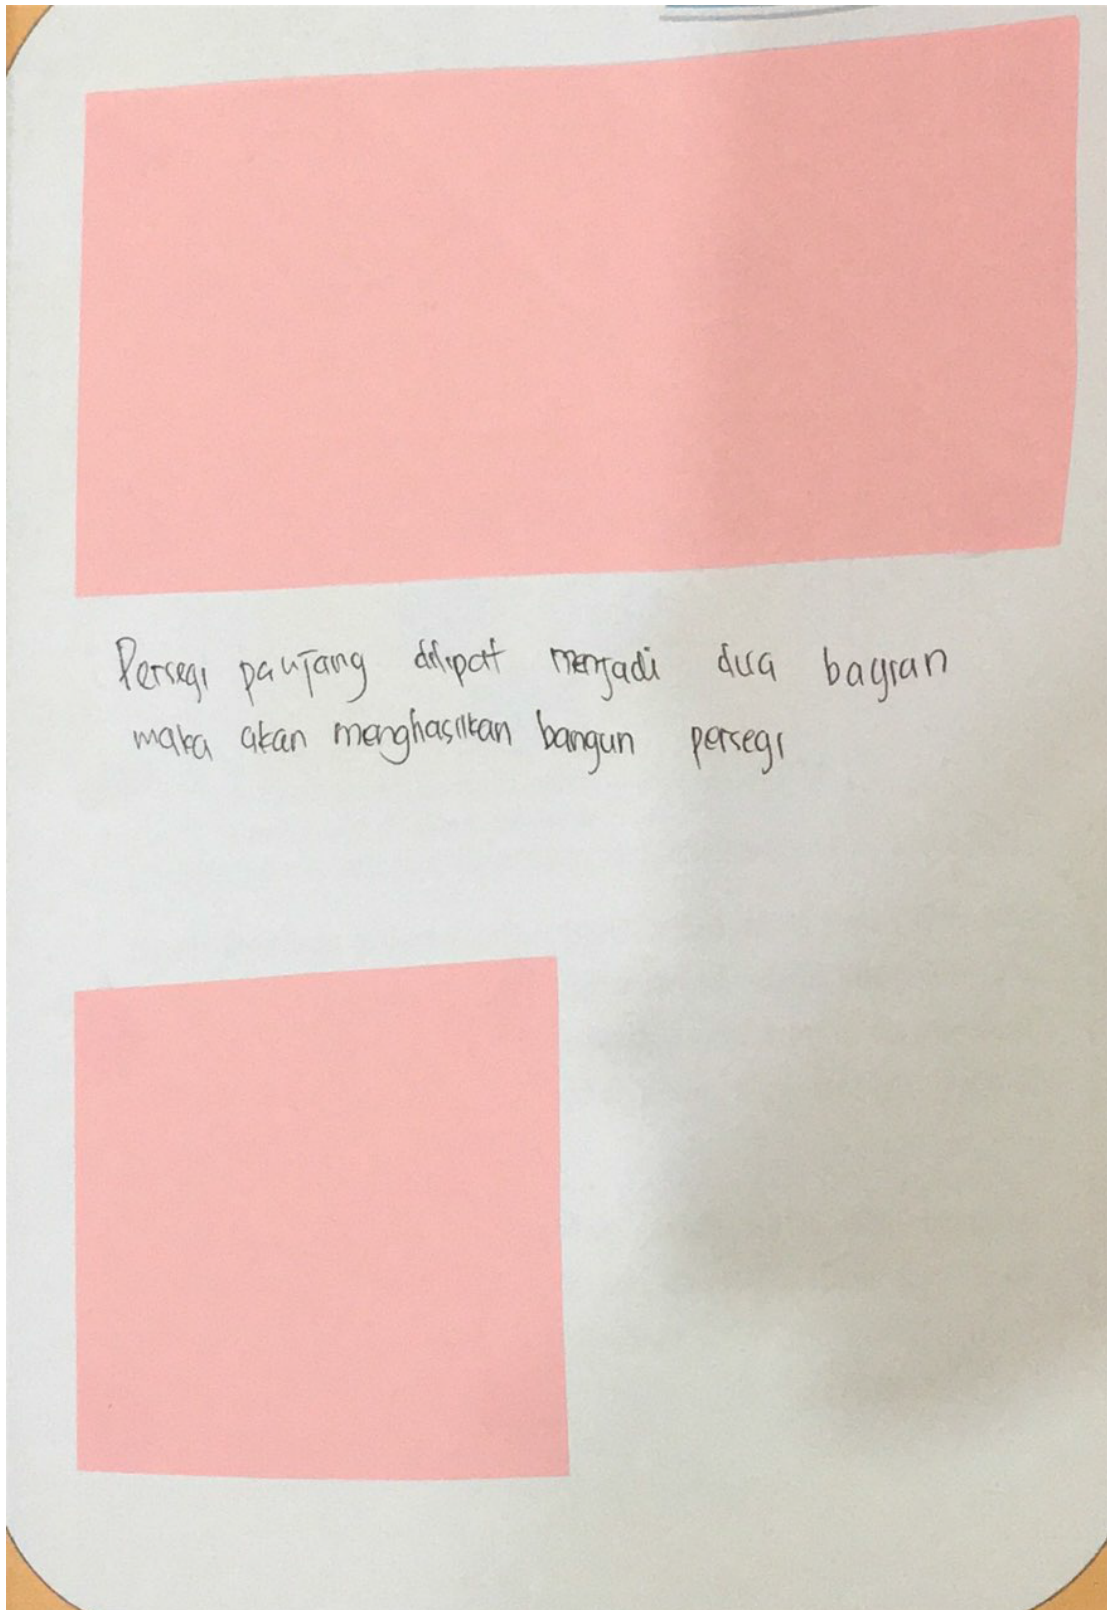 Persegi panjang dilipat menjadi dua bagian
maka akan menghasilkan bangun persegi